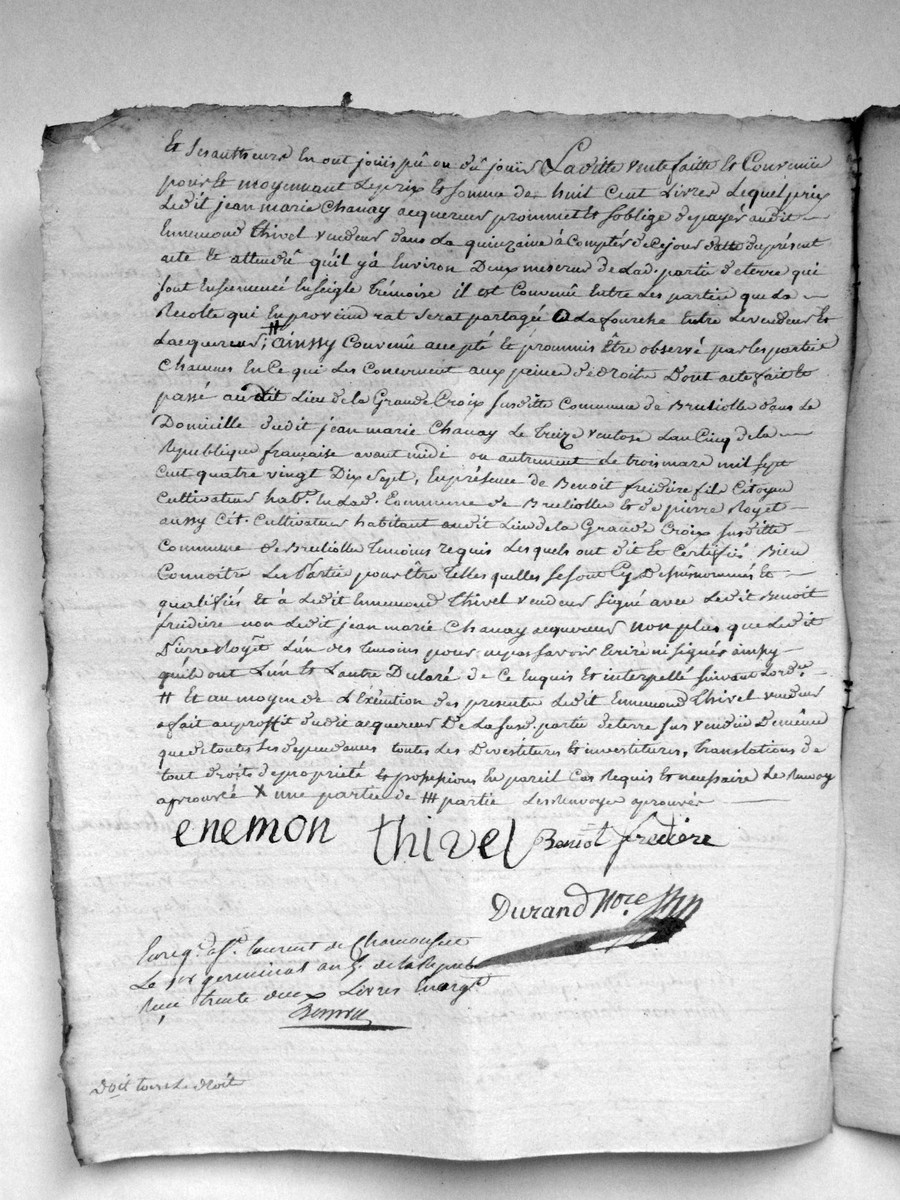 Et ses autheurs En ont jouis pû ou dû jouir La ditte vente faitte et Convenüe
pour et moyennant Le prix et somme de huit Cent Livres Lequel prix
Ledit jean marie Chanay acquereur prommet et soblige de payer audit
Ennemond thivel vendeur dans La quinzaine à Compter de Ce jour datte du présent
acte Et attendû quil y à Environ Deux mesures de Lad. partie de terre qui
sont Ensemencé En seigle trémoise il est Convenû Entre Les partie que La
Recolte qui En proviendrat serat partagée a La fourche Entre Le vendeur Et
Lacquereur, # ainssy Convenû accepté et prommis Être observé par Les partie
Chacunes En Ce qui Les Concernent aux peines de droit Dont acte fait Et
passé audit Lieu de la Grande Croix susditte Commune de Brulliolle dans Le
Domicille dudit jean marie Chanay Le treize ventose L'an Cinq de la
Republique française avant midi ou autrement Le trois mars mil sept
Cent quatre vingt Dix sept, En présence de Benoit freidiere fils Citoyen
Cultivateur hab.t En Lad. Commune de Brulliolle Et de pierre Noyel
aussy Cit. Cultivateur habitant audit Lieu de la Grande Croix susditte
Commune de Brulliolle temoins requis Lesquels ont dit Et Certifiés Bien
Connoitre Les Partie pour Être telles quelles se sont Cy Dessus nommés Et
qualifiés Et à Ledit Ennemond thivel vendeur signé avec Ledit Benoit
freidiere non Ledit jean marie Chanay acquereur non plus que Ledit
Pierre Noyel L'un des temoins pour ne pas savoir Ecrire ni signer ainsy
quils ont L'un Et L'autre Déclaré de Ce Enquis Et interpellé suivant Lord.ce
# Et au moyen de L'Exécution des presente Ledit Ennemond Thivel vendeur
a fait au proffit dudit acquereur De La susd. partie de terre sus vendüe De même
que de toutes Ses dependances toutes Les Devestitures Et investitures, translations de
tout droits de propriété Et possessions En pareil Cas Requis Et nécessaire Le Renvoy
aprouvé X une partie de ## partie Les Renvoyes aprouvés
enemon thivel Benoit fredière
Durand No.re
Enreg.é à St. Laurent de Chamousset
Le six germinal an 5. de la Repub
Reçu trente deux Livres
Doit tout Le droit